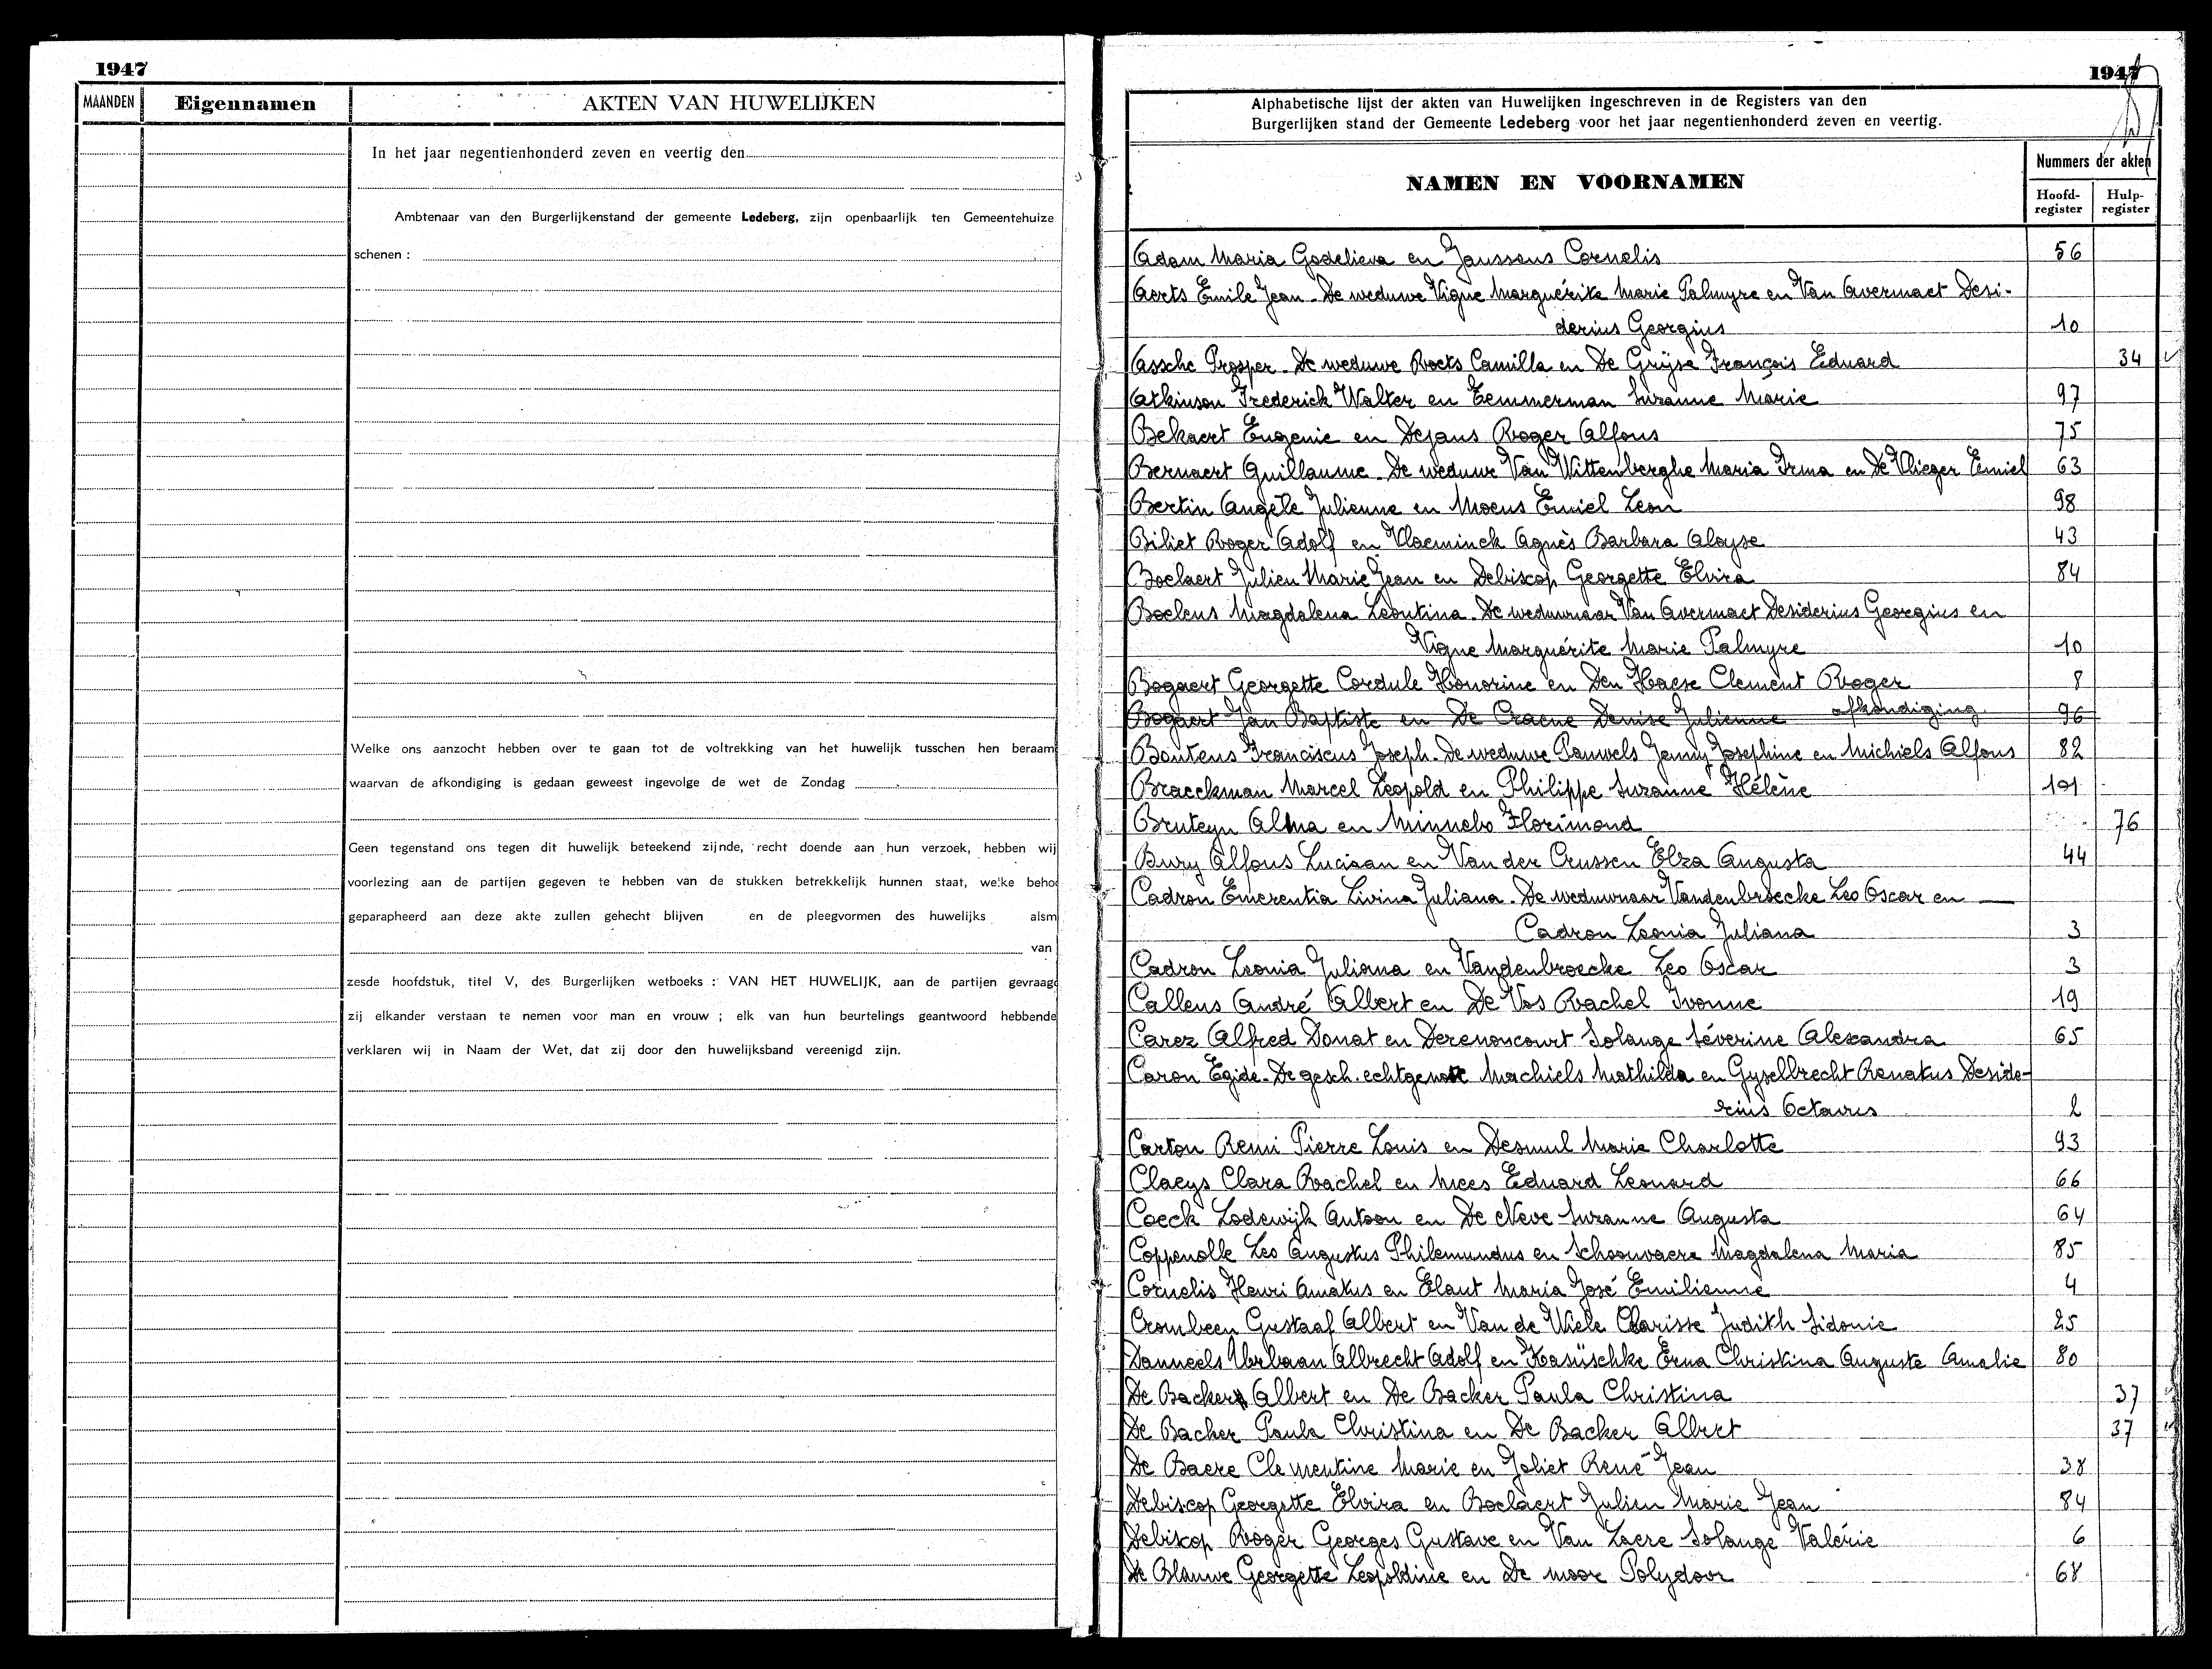 1947
MAANDEN Eigennamen AKTEN VAN HUWELIJKEN
In het jaar negentienhonderd zeven en veertig den
Ambtenaar van den Burgerlijkenstand der gemeente Ledeberg, zijn openbaarlijk ten Gemeentehuize
schenen :
Welke ons aanzocht hebben over te gaan tot de voltrekking van het huwelijk tusschen hen beraam
waarvan de afkondiging is gedaan geweest ingevolge de wet de Zondag
Geen tegenstand ons tegen dit huwelijk beteekend zijnde, recht doende aan hun verzoek, hebben wij
voorlezing aan de partijen gegeven te hebben van de stukken betrekkelijk hunnen staat, welke beho
geparapheerd aan deze akte zullen gehecht blijven en de pleegvormen des huwelijks alsm
van
zesde hoofdstuk, titel V, des Burgerlijken wetboeks : VAN HET HUWELIJK, aan de partijen gevraagd
zij elkander verstaan te nemen voor man en vrouw ; elk van hun beurtelings geantwoord hebbende
verklaren wij in Naam der Wet, dat zij door den huwelijksband vereenigd zijn.
1947
Alphabetische lijst der akten van Huwelijken ingeschreven in de Registers van den
Burgerlijken stand der Gemeente Ledeberg voor het jaar negentienhonderd zeven en veertig.
NAMEN EN VOORNAMEN
Nummers der akten
Hoofd-register Hulp-register
Adam Maria Godelieva en Janssens Cornelis 56
Aerts Emile Jean - De weduwe Vigne Marguérite Marie Palmyre en Van Avermaet Desi-
derius Georgius 10
Assche Prosper - De weduwe Roets Camilla en De Gryse François Eduard 34
Atkinson Frederick Walter en Temmerman Suzanne Marie 97
Bekaert Eugenie en Dejans Roger Alfons 75
Bernaert Guillaume - De weduwe Van Wittenberghe Maria Irma en De Vlieger Emiel 63
Bertin Angèle Julienne en Moens Emiel Leon 98
Biliet Roger Adolf en Vlaeminck Agnès Barbara Aloyse 43
Boelaert Julien Marie Jean en Debiscop Georgette Elvira 84
Boelens Magdalena Leontina - De weduwnaar Van Avermaet Desiderius Georgius en
Vigne Marguérite Marie Palmyre 10
Bogaert Georgette Cordule Honorine en Den Haese Clement Roger 8
Bogaert Jan Baptiste en De Craene Denise Julienne afkondiging 96
Boutens Franciscus Joseph - De weduwe Pauwels Jenny Josephine en Michiels Alfons 82
Braeckman Marcel Leopold en Philippe Suzanne Hélène 101
Bruteyn Alma en Minnebo Florimond 76
Bury Alfons Luciaan en Van der Crussen Elza Augusta 44
Cadron Emerentia Livina Juliana - De weduwnaar Vandenbroecke Leo Oscar en
Cadron Leonia Juliana 3
Cadron Leonia Juliana en Vandenbroecke Leo Oscar 3
Callens André Albert en De Vos Rachel Ivonne 19
Carez Alfred Donat en Derenoncourt Solange Séverine Alexandra 65
Caron Egide - De gesch. echtgenote Machiels Mathilda en Gyselbrecht Renatus Deside-
rius Octavus 2
Carton Remi Pierre Louis en Desmul Marie Charlotte 93
Claeys Clara Rachel en Mees Eduard Leonard 66
Coeck Lodewijk Antoon en De Neve Suzanne Augusta 64
Coppenolle Leo Augustus Philemundus en Schoonvaere Magdalena Maria 85
Cornelis Henri Amatus en Elaut Maria José Emilienne 4
Crombeen Gustaaf Albert en Van de Wiele Clarisse Judith Sidonie 25
Danneels Urbaan Albrecht Adolf en Kasüschke Erna Christina Auguste Amalie 80
De Backer Albert en De Backer Paula Christina 37
De Backer Paula Christina en De Backer Albert 37
De Baere Clementine Marie en Joliet René Jean 38
Debiscop Georgette Elvira en Boelaert Julien Marie Jean 84
Debiscop Roger Georges Gustave en Van Laere Solange Valérie 6
De Blauwe Georgette Leopoldine en De Moor Polydoor 68